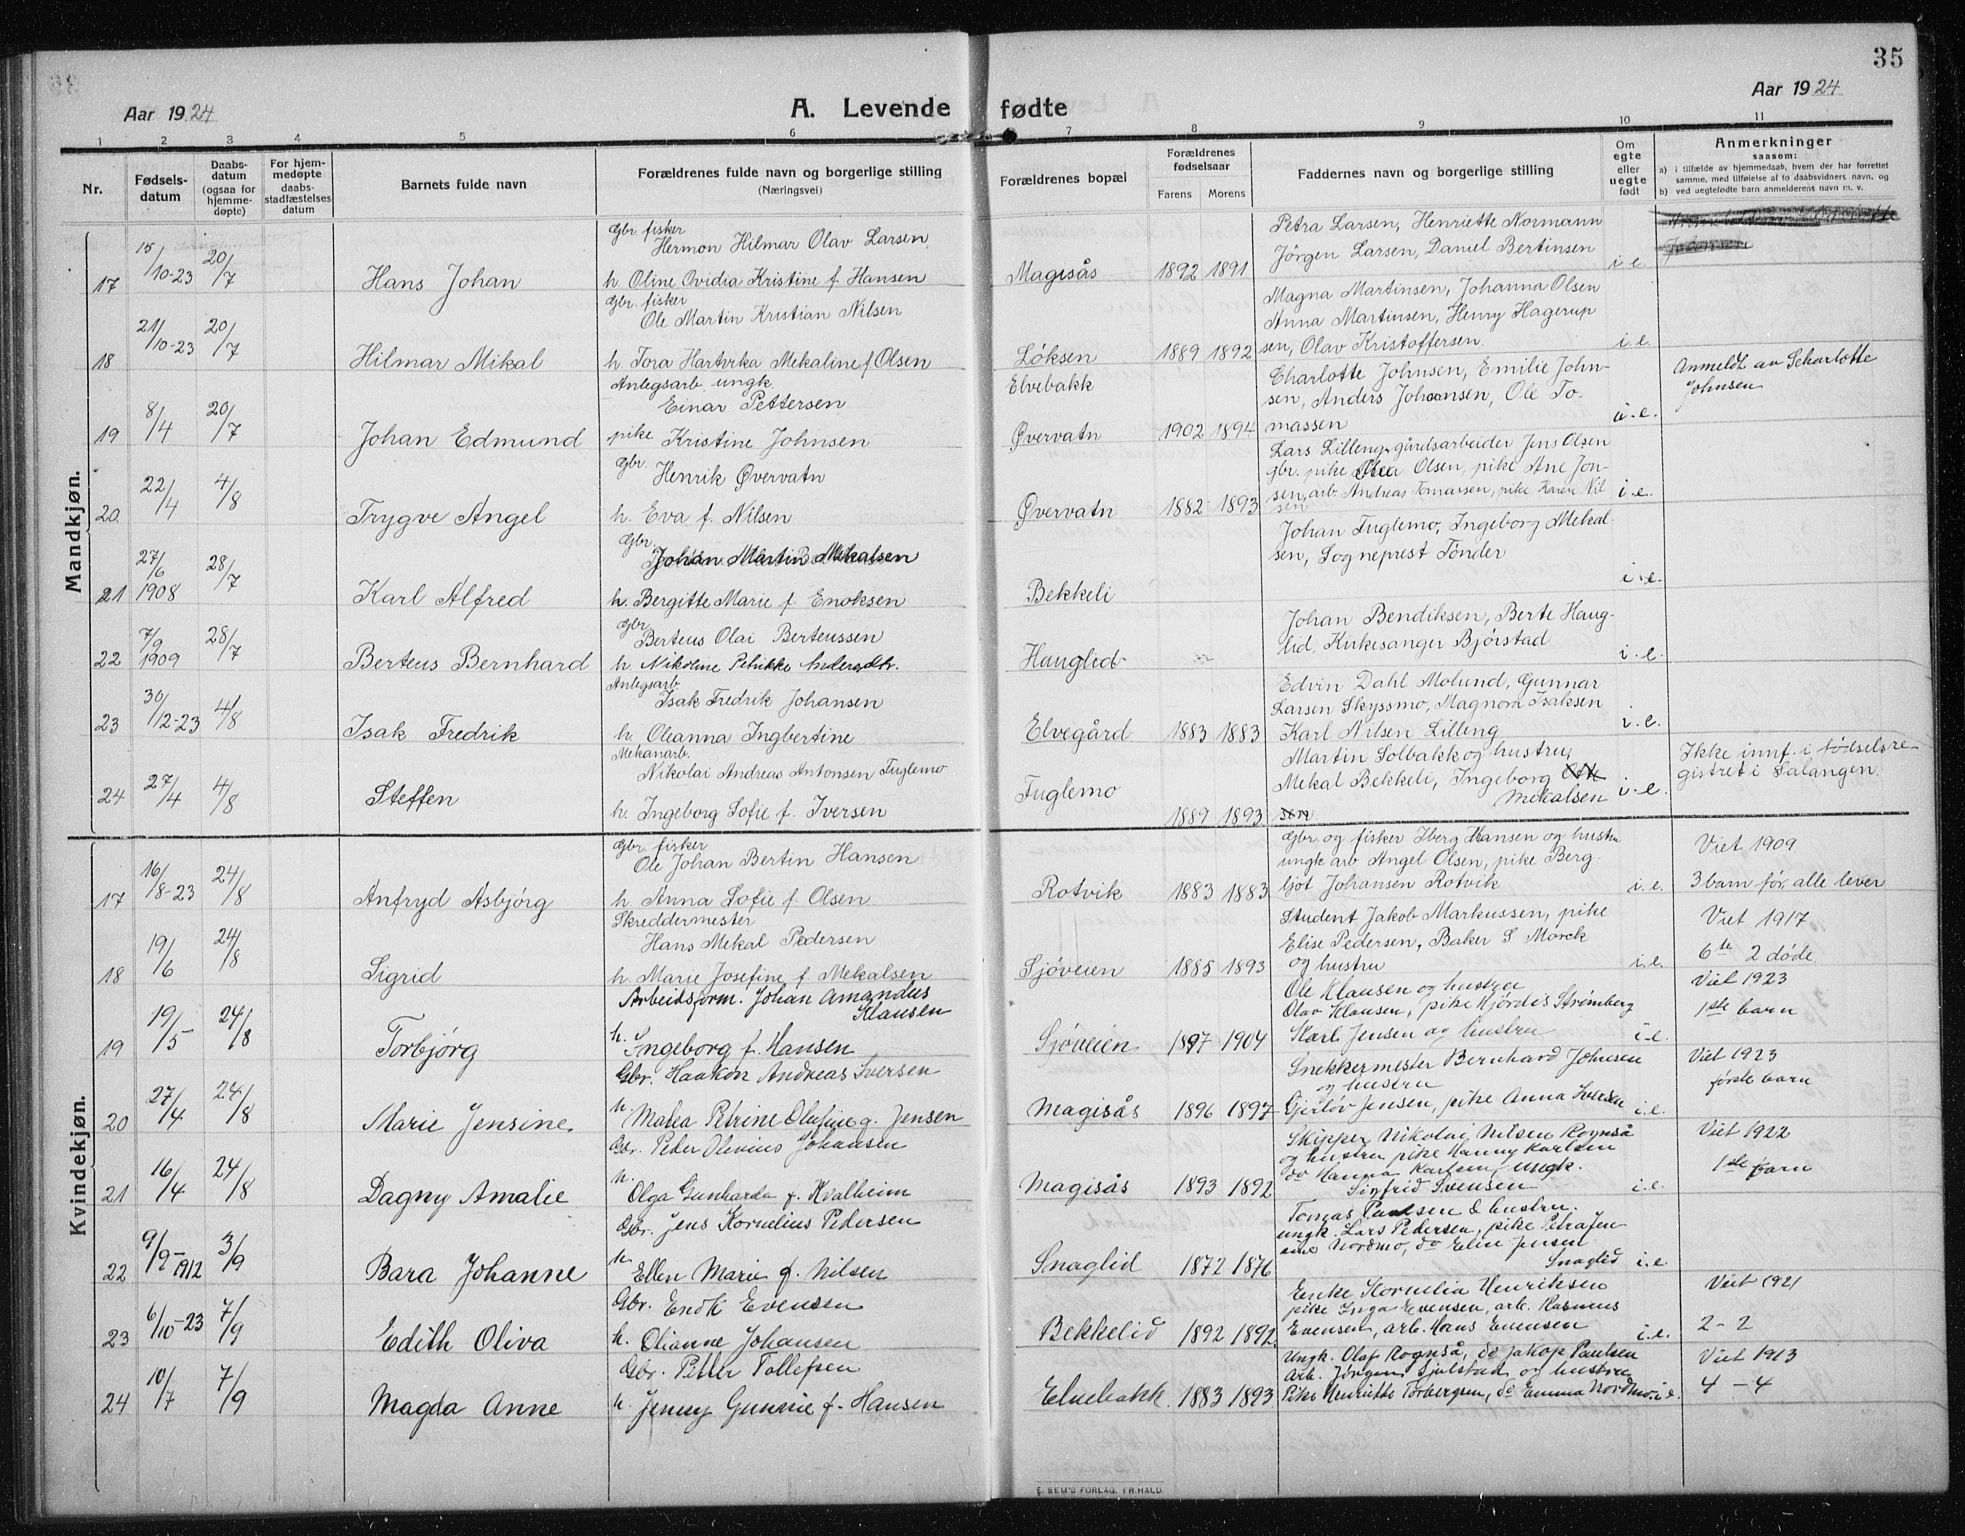 35
Aar 1924 A. Levende fødte Aar 1924
1 2 3 4 5 6 7 8 9 10 11
Nr.
Fødsels-
datum
Daabs-
datum
(ogsaa for
hjemme-
døpte)
For hjem-
medøpte
daabs-
stadfæstelses
datum
Barnets fulde navn
Forældrenes fulde navn og borgerlige stilling
(Næringsvei)
Forældrenes bopæl
Forældrenes
fødselsaar
Farens Morens
Faddernes navn og borgerlige stilling
Om
egte
eller
uegte
født
Anmerkninger
saasom:
a) i tilfælde av hjemmedaab, hvem der har forrettet
samme, med tilføielse af to daabsvidners navn, og
b) ved uegtefødte barn anmelderens navn m. v.
Mandkjøn.
17 15/10-23 20/7 Hans Johan
Gbr. fisker
Hermon Hilmar Olav Larsen
h. Oline Ovidia Kristine f. Hansen
Magisås 1892 1891
Petra Larsen, Henriette Normann
Jörgen Larsen, Daniel Bertinsen
i e
18 21/10-23 20/7 Hilmar Mikal
Gbr. fisker
Ole Martin Kristian Nilsen
h Tora Hartvka Mekaline f Olsen
Løksen 1889 1892
Magna Martinsen, Johanna Olsen
Anna Martinsen, Henry Hagerup
sen, Olav Kristoffersen.
i. e.
19 8/4 20/7 Johan Edmund
Anlegsarb ungk.
Einar Pettersen
pike Kristine Johnsen
Elvebakk
Øvervatn 1902 1894
Charlotte Johnsen, Emilie John-
sen, Anders Johansen, Ole To-
massen
u.e.
Anmeldt av Scharlotte
Johnsen
20 22/4 4/8 Trygve Angel
Gbr.
Henrik Øvervatn
h. Eva f. Nilsen
Øvervatn 1882 1893
Lars Lilleng, gårdsarbeider Jens Olsen
gbr. pike Olsen, pike Ane Jon-
sen, arb Andreas Tomassen, pike Karen Nil
sen
i. e.
21 27/6 1908 28/7 Karl Alfred
Gbr.
Johan Martin Mekalsen
h. Bergitte Marie f. Enoksen
Bekkeli
Johan Fuglemo, Ingeborg Mekal-
sen, Sogneprest Tönder
i.e.
22 7/9 1909 28/7 Berteus Bernhard
Gbr
Berteus Olai Berteussen
h. Nikoline Petrikke
Hauglid
Johan Bendiksen, Berte Haug-
lid, Kirkesanger Bjørstad
i.e.
23 30/12-23 4/8 Isak Fredrik
Anlegsarb
Isak Fredrik Johansen
h. Oleanna Ingbertine
Elvegård 1883 1883
Edvin Dahl Molund, Gunnar
Larsen Skyssmo, Magnora Isaksen
Karl Nilsen Lilleng
i.e.
24 27/4 4/8 Steffen
Mekanarb.
Nikolai Andreas Antonsen Fuglemo
h. Ingeborg Sofie f. Iversen
Fuglemo 1889 1893
Martin Solbakk og hustru
Mekal Bekkeli, Ingeborg
Mekalsen
i.e.
Ikke innf. i fødselsre-
gistret i Salangen.
Kvindekjøn.
17 16/8-23 24/8 Anfryd Asbjörg
Gbr. fisker
Ole Johan Bertin Hansen
h Anna Sofie f. Olsen
Rotvik 1883 1883
Gbr og fisker Iberg Hansen og hustru
ungk arb Angel Olsen, pike Berg-
ljot Johansen Rotvik
i. e.
Viet 1909
3 barn før, alle lever
18 19/6 24/8 Sigrid
Skreddermester
Hans Mekal Pedersen
h Marie Josefine f. Mekalsen
Sjöveien 1885 1893
Student Jakob Markussen, pike
Elise Pedersen, Baker S Mörck
og hustru
i.e.
Viet 1917
6te 2 döde
19 19/5 24/8 Torbjørg
Arbeidsform. Johan Amandus
Klausen
h. Ingeborg f. Hansen
Sjøveien 1897 1904
Ole Klausen og hustru
Olav Klausen, pike Hjördis Strömberg
Karl Jensen og hustru
i-e.
Viet 1923
1ste barn
20 27/4 24/8 Marie Jensine
Gbr. Haakon Andreas Iversen
h. Malea Petrine Olufine g. Jensen
Magisås 1896 1897
Snekkermester Bernhard Johnsen
og hustru
Gjerløv Jensen, pike Anna Iversen
i.e.
Viet 1923
første barn
21 16/4 24/8 Dagny Amalie
Gbr. Peder Olevius Johansen
h. Olga Gunharda f. Kvalheim
Magisås 1893 1892
Skipper Nikolai Nilsen Rognså
og hustru pike Hanny Karlsen
do Hanna Karlsen, ungk.
Sigfrid Svensen
i.e.
Viet 1922
1ste barn
22 9/2-1912 3/9 Bara Johanne
Gbr. Jens Kornelius Pedersen
h. Ellen Marie f. Nilsen
Snaglid 1872 1876
Tomas Paulsen & hustru.
ungk. Lars Pedersen, pike Petra Jen
sine Nordmo, do Eline Jensen
Snaglid
i.e
23 6/10-23 7/9 Edith Oliva
Gbr. Endr Evensen
h. Olianne Johansen
Bekkelid 1892 1892
Enke Kornelia Henriksen
pike Inga Evensen, arb. Rasmus
Evensen, arb. Hans Evensen
i.e.
Viet 1921
2-2
24 10/7 7/9 Magda Anne
Gbr. Petter Tollefsen
h. Jenny Gunnie f. Hansen
Elvebakk 1883 1893
Ungk. Olaf Rognså, do Jakop Paulsen
Arb. Jörgen Sjulstad og hustru
Pike Henriette Torbergsen, do Emma Nordmo
i.e.
Viet 1913
4-4
E. SEM'S FORLAG, FR.HALD.